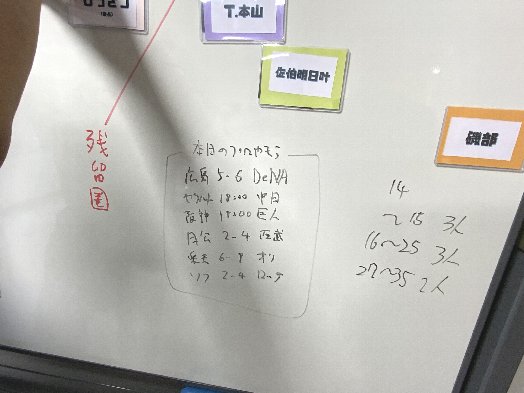 T.本山
佐伯明日叶
磯部
残
留
圏
広島 5-6 DeNA
ヤクルト 18:00 中日
阪神 18:00 巨人
日公 2-4 西武
楽天 6-8 オリ
ソフ 2-4 ロッテ
14
～15 3人
16～25 3人
27～35 2人